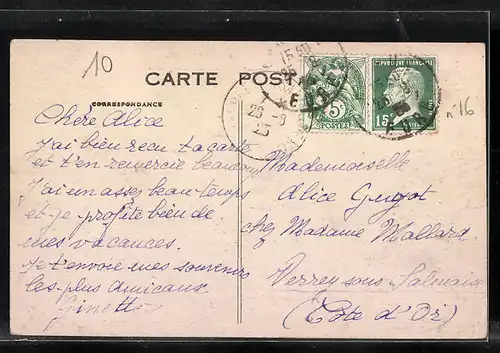 10
CARTE POST
CORRESPONDANCE
Chère Alice
J'ai bien reçu ta carte
et t'en remercie beaucoup
J'ai un assez beau temps
et je profite bien de
mes vacances.
Je t'envoie mes souvenirs
les plus amicaux
Ginett
5c
POSTES
RÉPUBLIQUE FRANÇAISE
15c
n°16
Mademoiselle
Alice Guyot
chez Madame Mallard
Verrey sous Salmaise
(Côte d'Or)